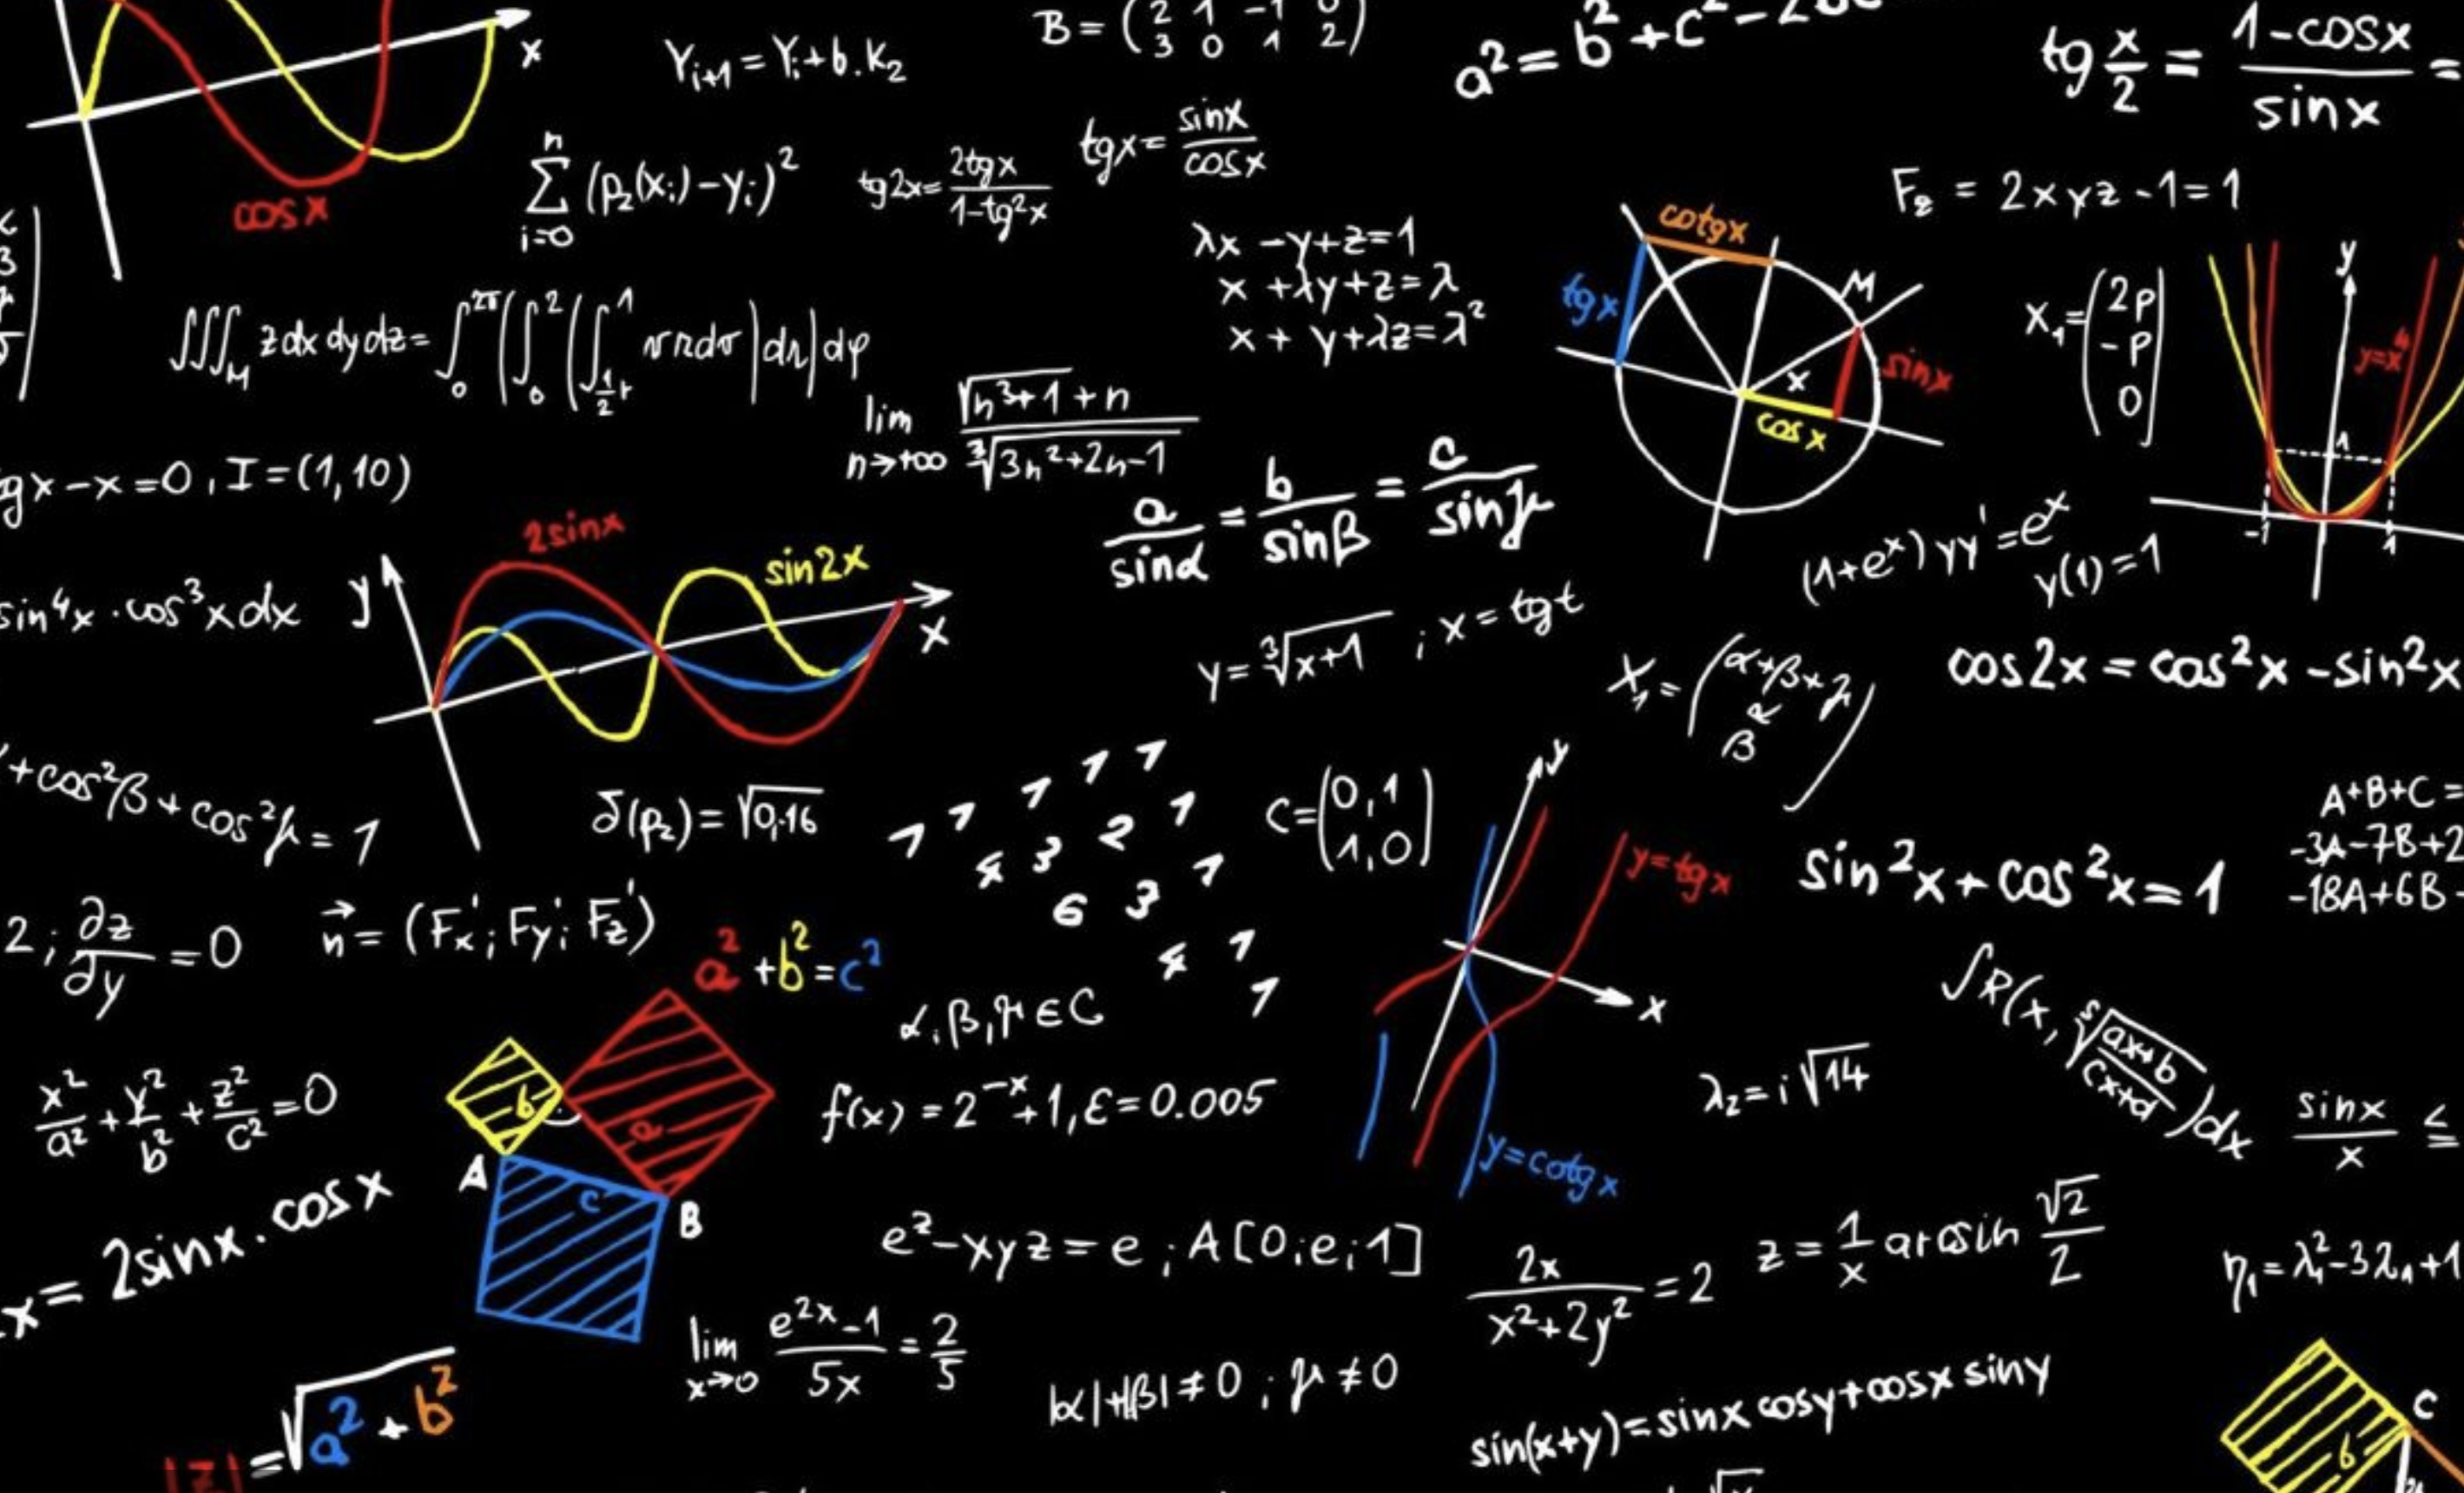 x
cos x
Y_{i+1} = Y_i + b.K_2
B = (2 1 -1 0
3 0 1 2)
a² = b² + c² - 2
tg x/2 = (1-cosx)/(sinx) =
∑_{i=0}^{n} (p_2(x_i) - y_i)²
tg2x = (2tgx)/(1-tg²x)
tgx = (sinx)/(cosx)
F_z = 2xyz - 1 = 1
λx - y + z = 1
x + λy + z = λ
x + y + λz = λ²
cotgx
tgx
M
sinx
x
cosx
X_1 = (2p
-p
0)
y
y=x⁴
1
-1
1
∭_M z dx dy dz = ∫_0^{2π} (∫_0^2 (∫_{½r}^1
lim_{n→+∞} (√(n³+1) + n)/(∛(3n²+2n-1))
gx - x = 0, I = (1,10)
a/sinα = b/sinβ = c/sinγ
(1+e^x) yy' = e^x
y(1) = 1
sin⁴x · cos³x dx
y
2sinx
sin2x
x
y = ∛(x+1) ; x = tgt
X_1 = (α+β+γ
α
β)
cos2x = cos²x - sin²x
+cos²β + cos²γ = 1
δ(p_2) = √0,16
1 1 1 1 1
4 3 2 1
6 3 1
4 1
1
C = (0,1
1,0)
y
y=tgx
x
y=cotgx
sin²x + cos²x = 1
A+B+C =
-3A-7B+2
-18A+6B
2; ∂z/∂y = 0
n⃗ = (F'x; F'y; F'z)
a² + b² = c²
b
a
A
c
B
α, β, γ ∈ C
∫R(x, ⁵√((ax+b)/(cx+d)))dx
x²/a² + y²/b² + z²/c² = 0
f(x) = 2^{-x} + 1, ε = 0.005
λ_2 = i√14
sinx/x ≤
x = 2sinx . cosx
e^z - xyz = e ; A[0;e;1]
2x/(x²+2y²) = 2
z = 1/x arcsin √2/2
η_1 = λ_1² - 3λ_1 + 1
lim_{x→0} (e^{2x}-1)/(5x) = 2/5
|α|+|β| ≠ 0 ; γ ≠ 0
sin(x+y) = sinx cosy + cosx siny
|z| = √(a² + b²)
C
b